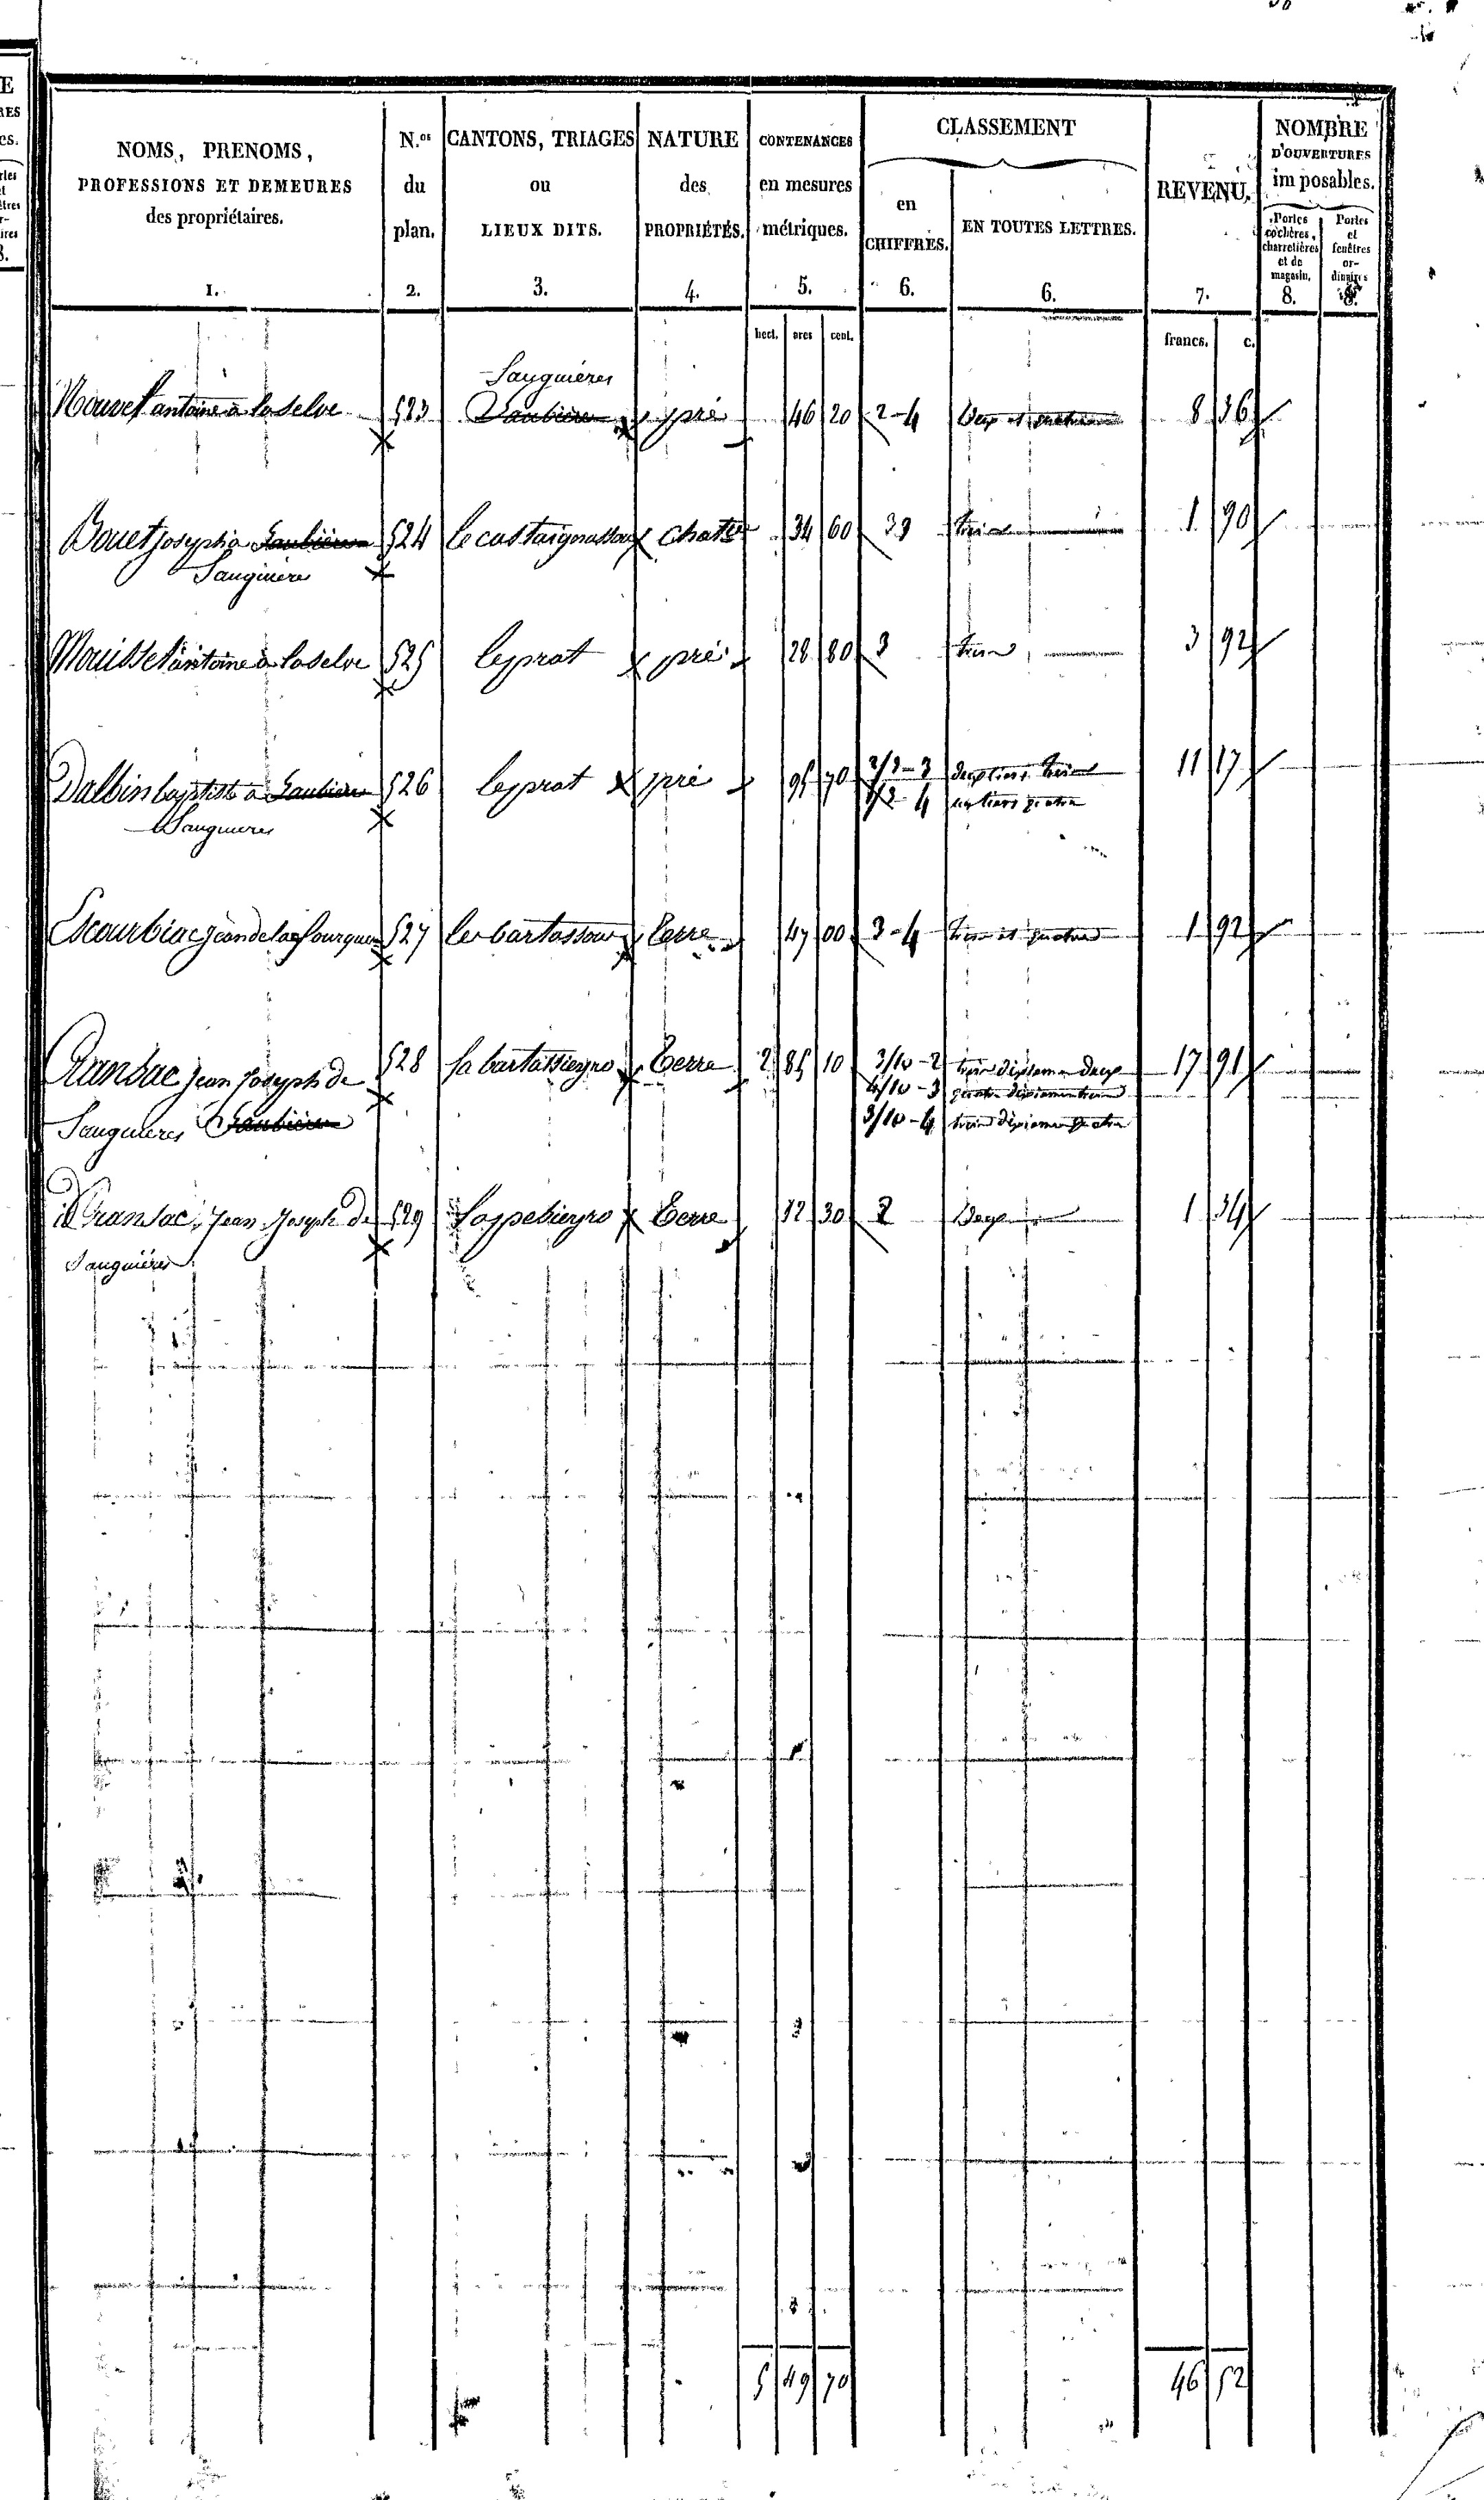 NOMS, PRENOMS,
PROFESSIONS ET DEMEURES
des propriétaires.
1.
N.os
du
plan.
2.
CANTONS, TRIAGES
ou
LIEUX DITS.
3.
NATURE
des
PROPRIÉTÉS.
4.
CONTENANCES
en mesures
métriques.
5.
CLASSEMENT
en
CHIFFRES.
6.
EN TOUTES LETTRES.
6.
REVENU.
7.
NOMBRE
D'OUVERTURES
imposables.
Portes
cochères,
charretières
et de
magasin.
8.
Portes
et
fenêtres
or-
dinaires
8.
hect. ares cent. francs. c.
Sauguières
antoine à la Selve 523 pré 46 20 2-4 deux et quatre 8 36
Bouet joseph à 524 chat 34 60 3 trois 1 90
Sauguières
antoine à la Selve 525 le prat pré 28 80 3 trois 3 92
Dalbin baptiste à 526 le prat pré 95 70 2/3-3 deux tiers trois 11 17
4 un tiers quatre
Sauguières
Escourbiac jean de 527 terre 47 00 3-4 trois et quatre 1 92
Ransac jean joseph de 528 la bartassieyro terre 2 85 10 3/10-2 trois dixièmes deux 17 91
4/10-3 quatre dixièmes trois
3/10-4 trois dixièmes quatre
Sauguières
Jean Joseph de 529 terre 12 30 2 Deux 1 34
Sauguières
5 49 70 46 52